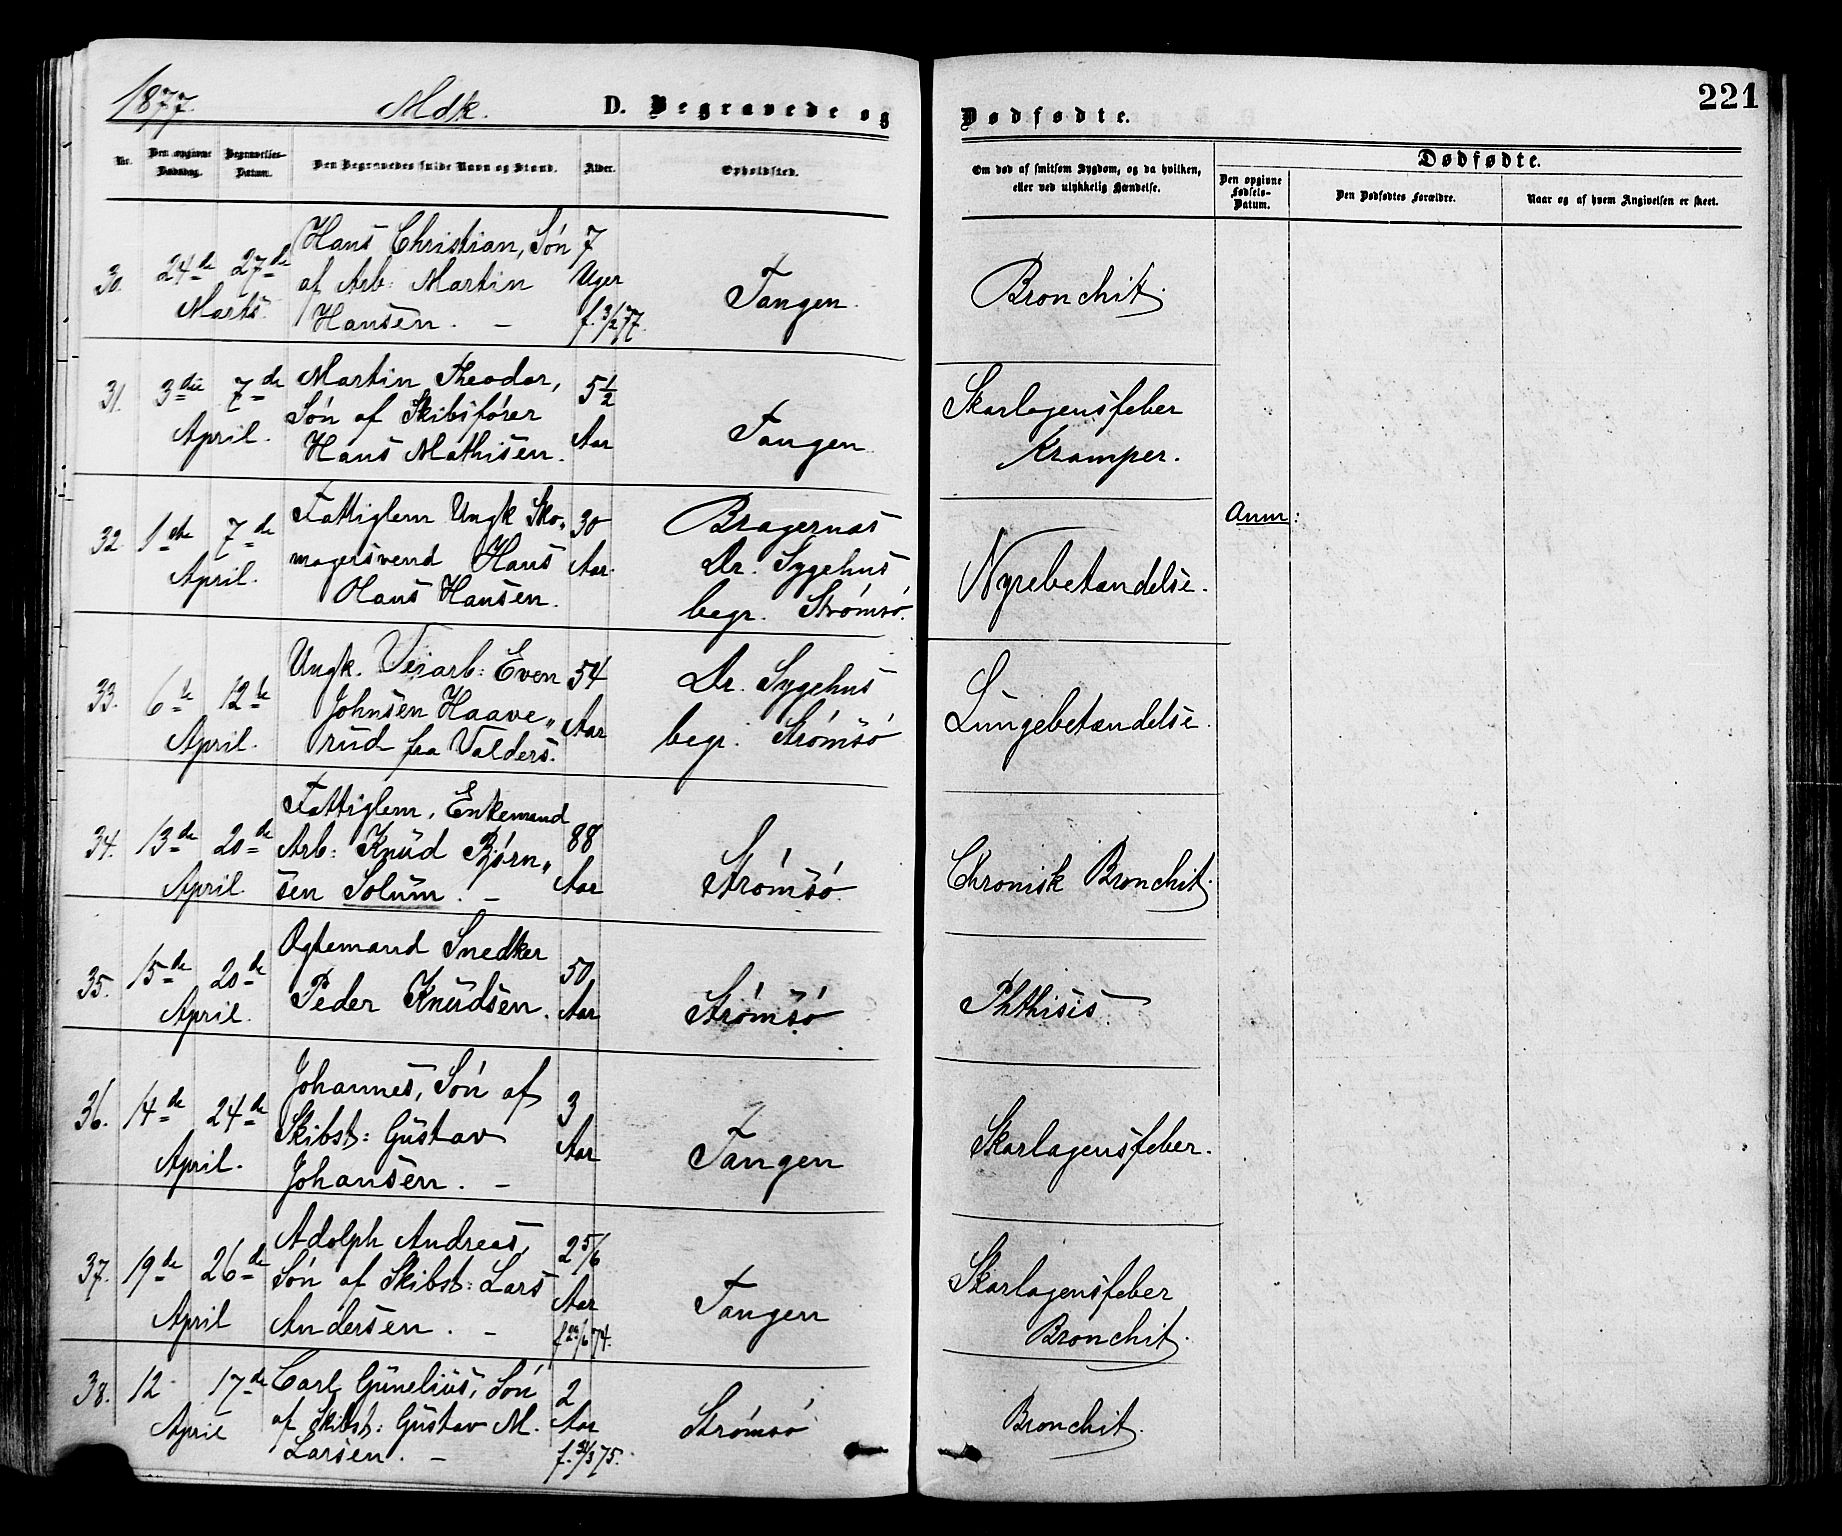 1877. Mdk. D. Begravede og Dødfødte. 221
Nr. Den opgivne Dødsdag. Begravelses-Datum. Den Begravedes fulde Navn og Stand. Alder. Opholdsted. Om død af smitsom Sygdom, og da hvilken, eller ved ulykkelig Hændelse. Dødfødte.
Den opgivne Fødsels-Datum. Den Dødfødtes Forældre. Naar og af hvem Angivelsen er skeet.
30. 24de 27de Hans Christian, Søn 7
Marts. af Arb: Martin Uger Tangen. Bronchit.
Hansen. – f. 3/2 77.
31. 3die 7de Martin Theodor, 5½
April. Søn af Skibsfører Aar Tangen. Skarlagensfeber
Hans Mathisen. Kramper.
32. 1ste 7de Fattiglem Ungk Sko„ 30 Bragernæs Anm:
April. magersvend Hans Aar. Dr. Sygehus Nyrebetændelse.
Hans Hansen. begr. Strømsø.
33. 6te 12te Ungk. Veiarb: Even 54 Dr. Sygehus
April. Johnsen Haave„ Aar begr. Strømsø Lungebetændelse.
rud fra Valders.
34. 13de 20de Fattiglem, Enkemand 88
April. Arb: Knud Bjørn„ Aar Strømsø. Chronisk Bronchit.
sen Solum. –
35. 15de 20de Ogtemand Snedker 50
April. Peder Knudsen. Aar Strømsø. Phthisis.
36. 14de 24de Johannes, Søn af 3
April. Skibst: Gustav Aar Tangen Skarlagensfeber.
Johansen. –
37. 19de 26de Adolph Andreas, 2 5/6
April Søn af Skibst: Lars Aar Tangen Skarlagensfeber
Andersen. – Bronchit.
38. 12 17de Carl Gunelius, Søn 2
April af Skibst: Gustav M. Aar Strømsø Bronchit.
Larsen. –